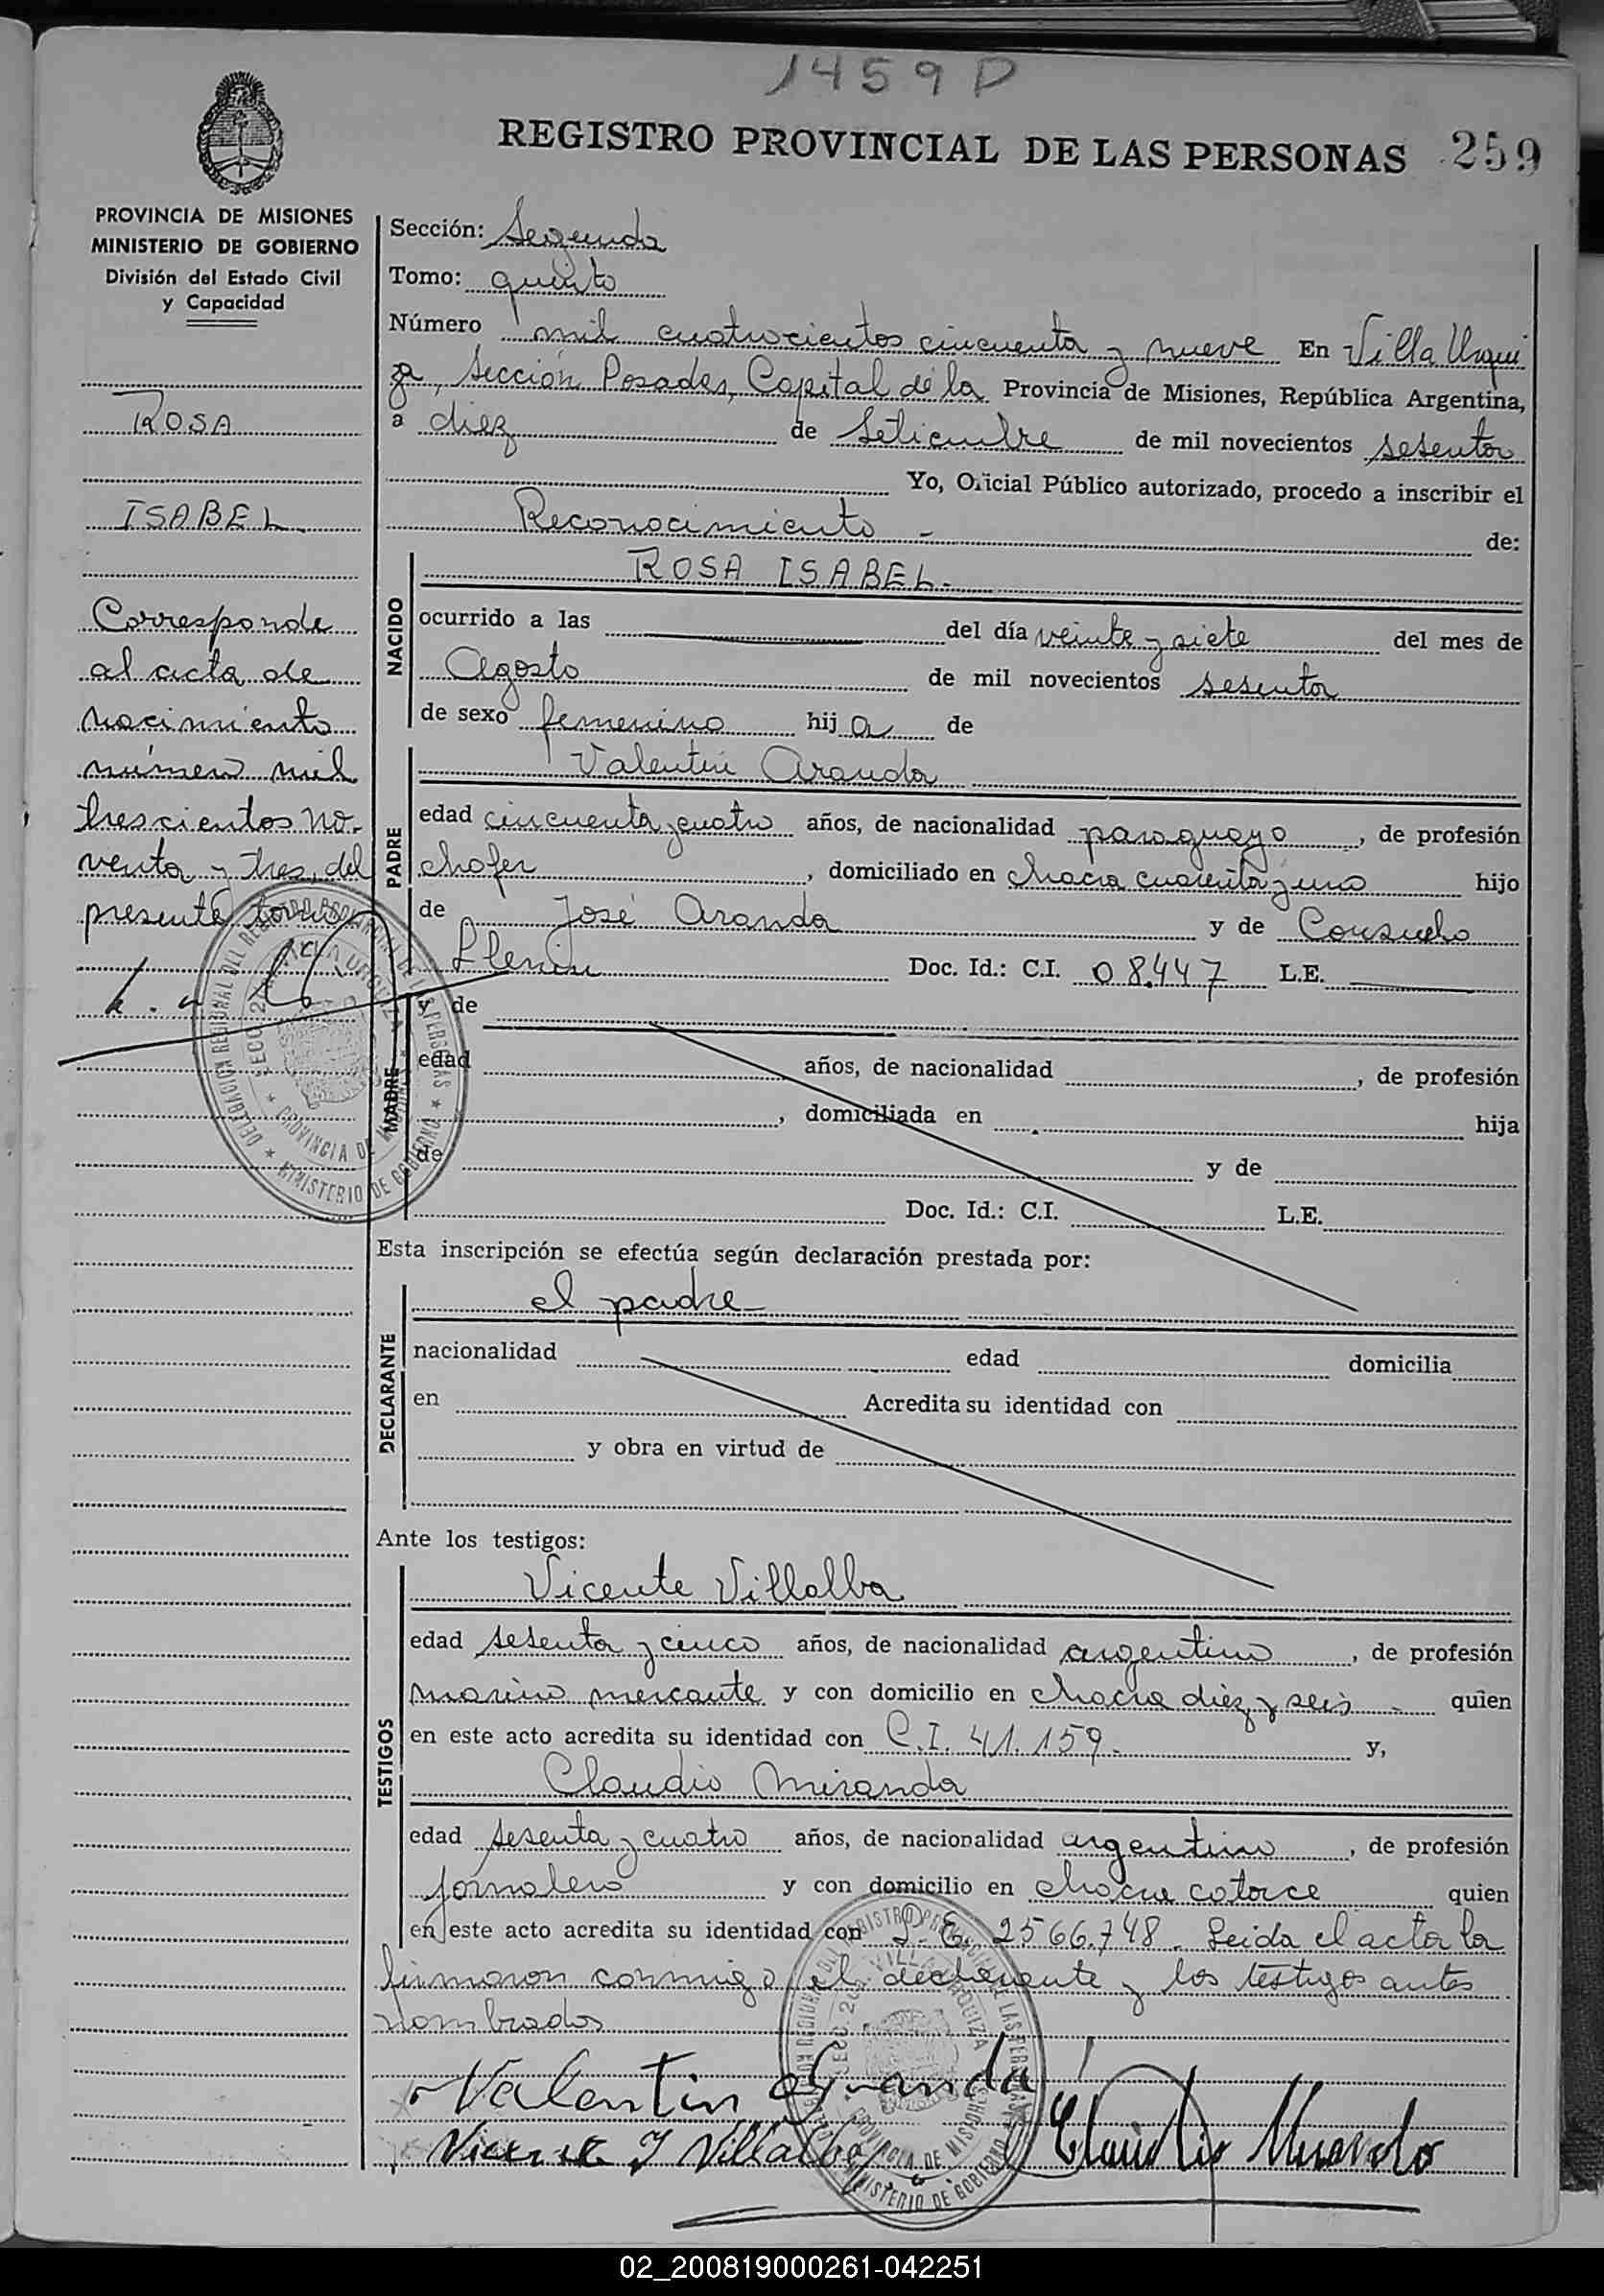 1459 D
REGISTRO PROVINCIAL DE LAS PERSONAS 259
PROVINCIA DE MISIONES
MINISTERIO DE GOBIERNO
División del Estado Civil
y Capacidad
ROSA
ISABEL
Corresponde
al acta de
nacimiento
número mil
trescientos no-
venta y tres, del
presente tomo
Sección: Segunda
Tomo: quinto
Número mil cuatrocientos cincuenta y nueve En Villa Urqui
za, Sección Posadas, Capital de la Provincia de Misiones, República Argentina,
a diez de Setiembre de mil novecientos sesenta
Yo, Oficial Público autorizado, procedo a inscribir el
Reconocimiento - de:
NACIDO
ROSA ISABEL.
ocurrido a las del día veinte y siete del mes de
Agosto de mil novecientos sesenta
de sexo femenino hija de
PADRE
Valentin Aranda
edad cincuenta y cuatro años, de nacionalidad paraguayo, de profesión
chofer, domiciliado en chacra cuarenta y uno hijo
de José Aranda y de Consuelo
Doc. Id.: C.I. 08.447 L.E.
MADRE
y de
edad años, de nacionalidad , de profesión
, domiciliada en hija
de y de
Doc. Id.: C.I. L.E.
Esta inscripción se efectúa según declaración prestada por:
DECLARANTE
el padre
nacionalidad edad domicilia
en Acredita su identidad con
y obra en virtud de
Ante los testigos:
TESTIGOS
Vicente Villalba
edad sesenta y cinco años, de nacionalidad argentino, de profesión
marino mercante y con domicilio en chacra diez y seis - quien
en este acto acredita su identidad con C.I. 41.159. y,
Claudio Miranda
edad sesenta y cuatro años, de nacionalidad argentino, de profesión
jornalero y con domicilio en chacra catorce quien
en este acto acredita su identidad con L.E. 2566.748. Leida el acta la
firmaron conmigo el declarante y los testigos antes
nombrados
Valentin Aranda
Vicente J Villalba Claudio Miranda
02_200819000261-042251